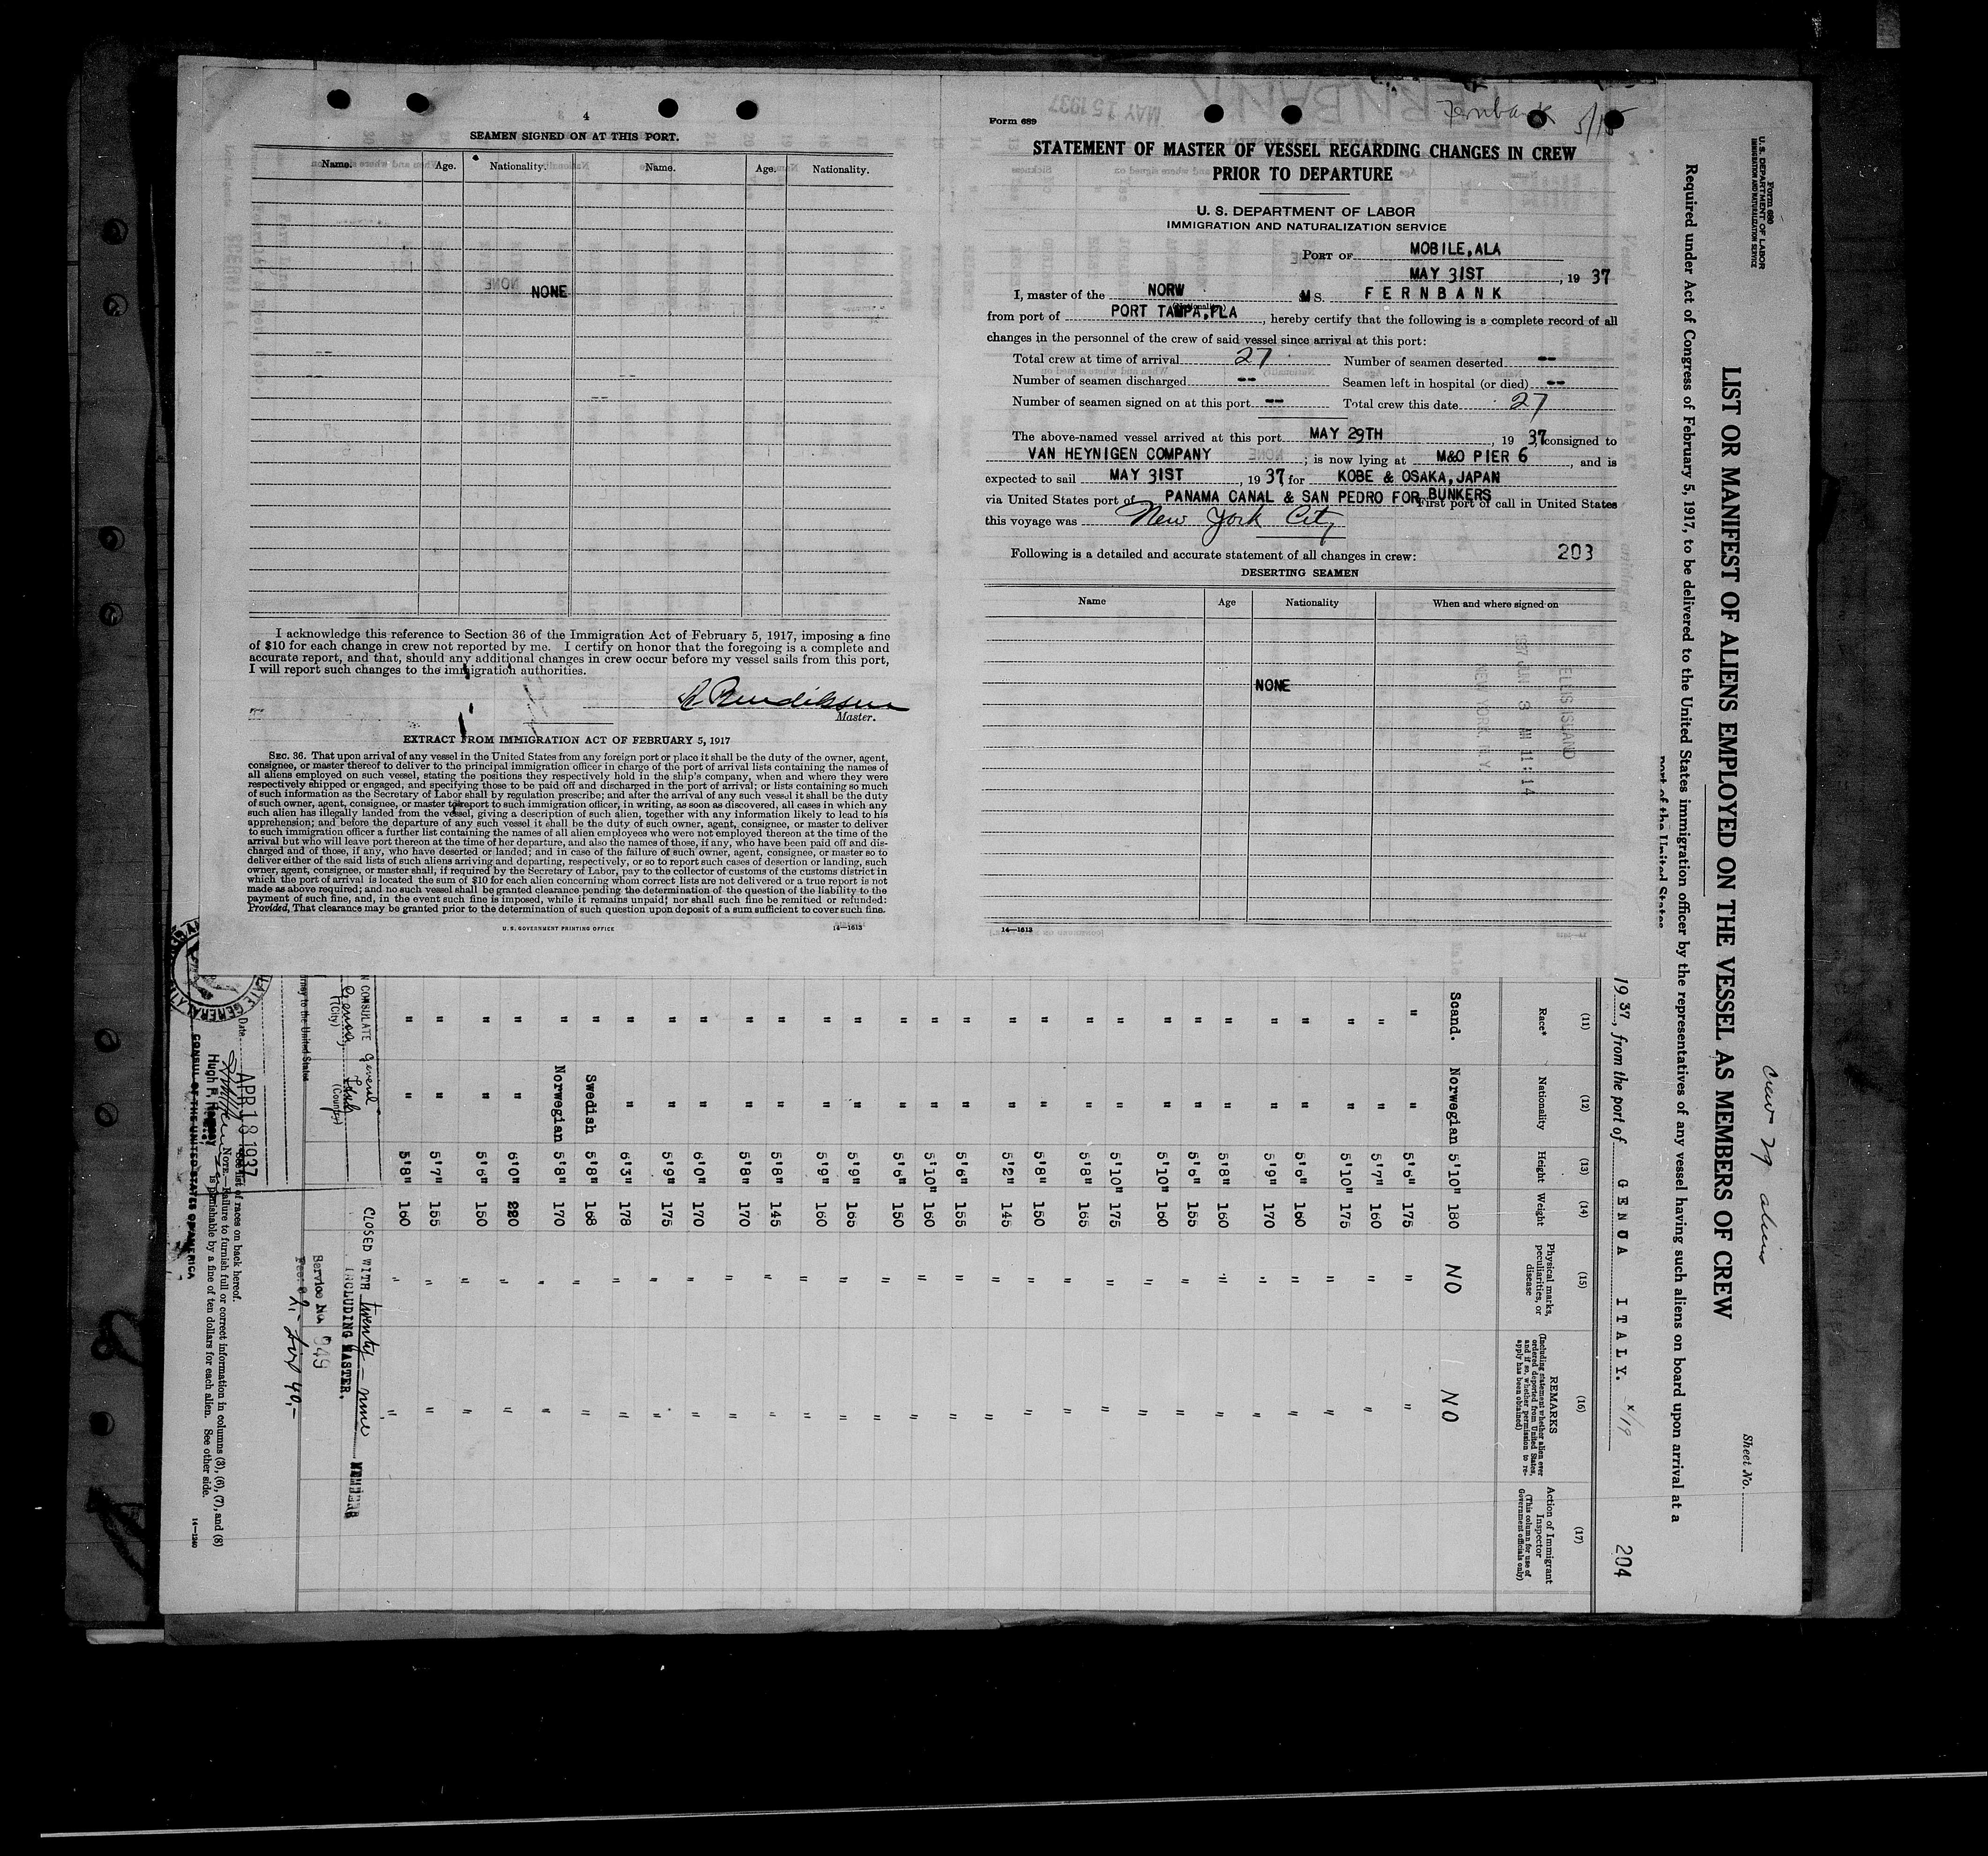 4
SEAMEN SIGNED ON AT THIS PORT.
Name. Age. Nationality. Name. Age. Nationality.
NONE
I acknowledge this reference to Section 36 of the Immigration Act of February 5, 1917, imposing a fine
of $10 for each change in crew not reported by me. I certify on honor that the foregoing is a complete and
accurate report, and that, should any additional changes in crew occur before my vessel sails from this port,
I will report such changes to the immigration authorities.
Master.
EXTRACT FROM IMMIGRATION ACT OF FEBRUARY 5, 1917
SEC. 36. That upon arrival of any vessel in the United States from any foreign port or place it shall be the duty of the owner, agent,
consignee, or master thereof to deliver to the principal immigration officer in charge of the port of arrival lists containing the names of
all aliens employed on such vessel, stating the positions they respectively hold in the ship's company, when and where they were
respectively shipped or engaged, and specifying those to be paid off and discharged in the port of arrival; or lists containing so much
of such information as the Secretary of Labor shall by regulation prescribe; and after the arrival of any such vessel it shall be the duty
of such owner, agent, consignee, or master to report to such immigration officer, in writing, as soon as discovered, all cases in which any
such alien has illegally landed from the vessel, giving a description of such alien, together with any information likely to lead to his
apprehension; and before the departure of any such vessel it shall be the duty of such owner, agent, consignee, or master to deliver
to such immigration officer a further list containing the names of all alien employees who were not employed thereon at the time of the
arrival but who will leave port thereon at the time of her departure, and also the names of those, if any, who have been paid off and dis-
charged and of those, if any, who have deserted or landed; and in case of the failure of such owner, agent, consignee, or master so to
deliver either of the said lists of such aliens arriving and departing, respectively, or so to report such cases of desertion or landing, such
owner, agent, consignee, or master shall, if required by the Secretary of Labor, pay to the collector of customs of the customs district in
which the port of arrival is located the sum of $10 for each alien concerning whom correct lists are not delivered or a true report is not
made as above required; and no such vessel shall be granted clearance pending the determination of the question of the liability to the
payment of such fine, and, in the event such fine is imposed, while it remains unpaid; nor shall such fine be remitted or refunded:
Provided, That clearance may be granted prior to the determination of such question upon deposit of a sum sufficient to cover such fine.
U. S. GOVERNMENT PRINTING OFFICE 14—1613
Form 689
Fernbank 5/15
STATEMENT OF MASTER OF VESSEL REGARDING CHANGES IN CREW
PRIOR TO DEPARTURE
U. S. DEPARTMENT OF LABOR
IMMIGRATION AND NATURALIZATION SERVICE
PORT OF MOBILE, ALA
MAY 31ST, 1937
I, master of the NORW M S. FERNBANK
(Nationality)
from port of PORT TAMPA, FLA, hereby certify that the following is a complete record of all
changes in the personnel of the crew of said vessel since arrival at this port:
Total crew at time of arrival 27 Number of seamen deserted --
Number of seamen discharged -- Seamen left in hospital (or died) --
Number of seamen signed on at this port -- Total crew this date 27
The above-named vessel arrived at this port MAY 29TH, 1937, consigned to
VAN HEYNIGEN COMPANY; is now lying at M&O PIER 6, and is
expected to sail MAY 31ST, 1937 for KOBE & OSAKA, JAPAN
via United States port of PANAMA CANAL & SAN PEDRO FOR BUNKERS First port of call in United States
this voyage was New York City
Following is a detailed and accurate statement of all changes in crew: 203
DESERTING SEAMEN
Name Age Nationality When and where signed on
NONE
14—1613
ELLIS ISLAND
1937 JUN 3 AM 11:14
NEW YORK, N.Y.
Form 680
U. S. DEPARTMENT OF LABOR
IMMIGRATION AND NATURALIZATION SERVICE
crew 29 aliens
Sheet No.
LIST OR MANIFEST OF ALIENS EMPLOYED ON THE VESSEL AS MEMBERS OF CREW
Required under Act of Congress of February 5, 1917, to be delivered to the United States immigration officer by the representatives of any vessel having such aliens on board upon arrival at a
port of the United States
1937, from the port of GENOA ITALY.
204
(11) (12) (13) (14) (15) (16) (17)
Race* Nationality Height Weight Physical marks, peculiarities, or disease REMARKS (Including statement whether alien ever ordered deported from United States, and if so, whether permission to re-apply has been obtained) Action of Immigrant Inspector (This column for use of Government officials only)
Scand. Norwegian 5'10" 180 NO NO
" " 5'6" 175 " "
" " 5'7" 160 " "
" " 5'10" 175 " "
" " 5'6" 160 " "
" " 5'9" 170 " "
" " 5'8" 160 " "
" " 5'6" 155 " "
" " 5'10" 160 " "
" " 5'10" 175 " "
" " 5'8" 165 " "
" " 5'8" 150 " "
" " 5'2" 145 " "
" " 5'6" 155 " "
" " 5'10" 160 " "
" " 5'6" 150 " "
" " 5'9" 165 " "
" " 5'9" 160 " "
" " 5'8" 145 " "
" " 5'8" 170 " "
" " 6'0" 170 " "
" " 5'9" 175 " "
" " 6'3" 178 " "
" Swedish 5'8" 168 " "
" Norwegian 5'8" 170 " "
" " 6'0" 220 " "
" " 5'6" 150 " "
" " 5'7" 155 " "
" " 5'8" 160 " "
CLOSED WITH twenty-nine MEMBERS
INCLUDING MASTER.
CONSULATE General
Genoa, Italy
(City) (Country)
Service No. 949
Fee: $ 2,- Lire 40,-
journey to the United States
Date APR 18 1937
Hugh F.
CONSUL OF THE UNITED STATES OF AMERICA
*See list of races on back hereof.
NOTE.—Failure to furnish full or correct information in columns (3), (6), (7), and (8)
is punishable by a fine of ten dollars for each alien. See other side.
14—1240